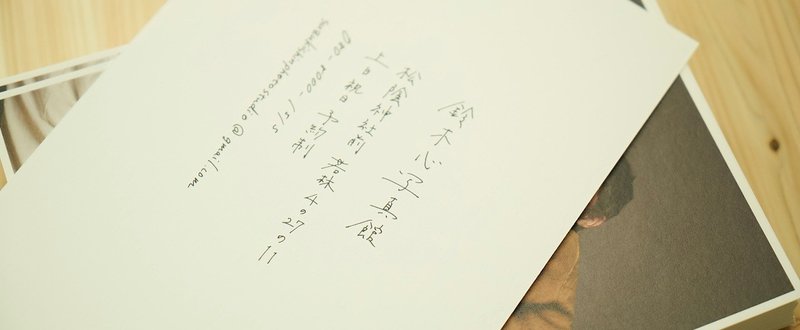 鈴木心写真館
松陰神社前 若林4の27の11
土日祝日 予約制
suzukishinphotostudio@gmail.com